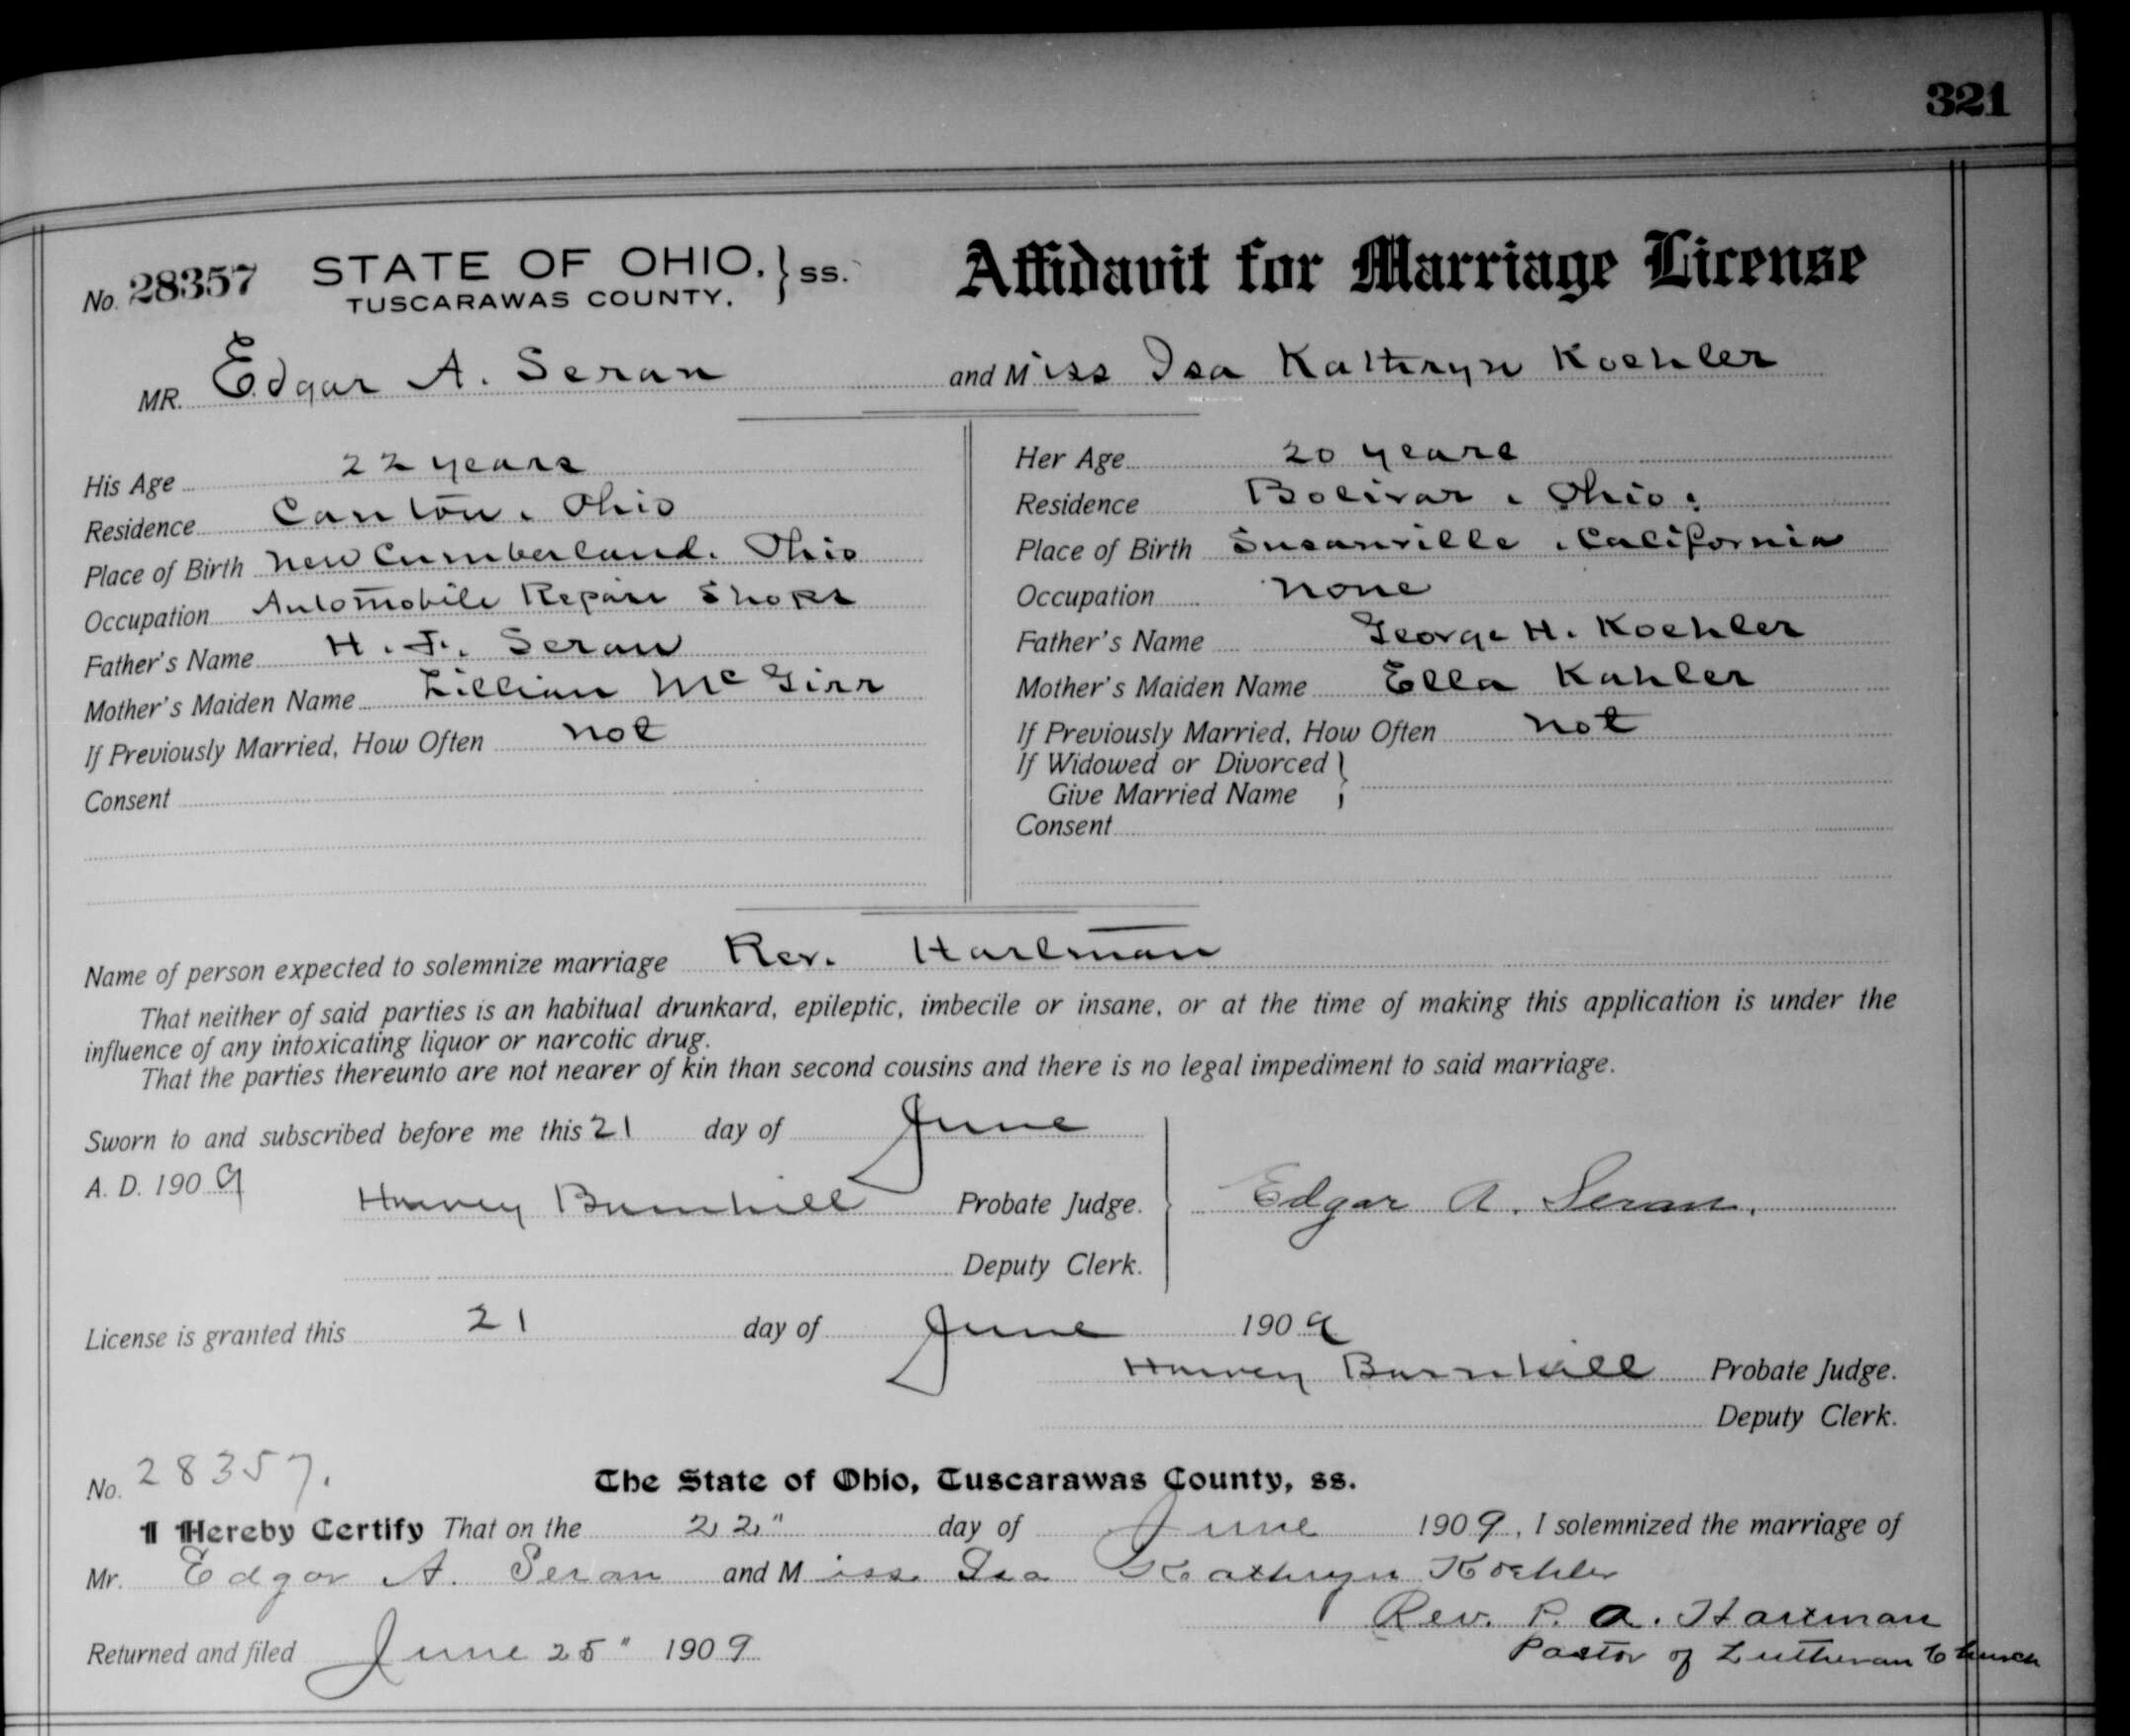 321
No. 28357 STATE OF OHIO, } ss. Affidavit for Marriage License
TUSCARAWAS COUNTY.
MR. Edgar A. Seran and Miss Isa Kathryn Koehler
His Age 22 years
Residence Canton, Ohio
Place of Birth New Cumberland, Ohio
Occupation Automobile Repair Shops
Father's Name H. F. Seran
Mother's Maiden Name Lillian McGirr
If Previously Married, How Often not
Consent
Her Age 20 years
Residence Bolivar, Ohio.
Place of Birth Susanville, California
Occupation None
Father's Name George H. Koehler
Mother's Maiden Name Ella Kahler
If Previously Married, How Often not
If Widowed or Divorced }
Give Married Name
Consent
Name of person expected to solemnize marriage Rev. Hartman
That neither of said parties is an habitual drunkard, epileptic, imbecile or insane, or at the time of making this application is under the
influence of any intoxicating liquor or narcotic drug.
That the parties thereunto are not nearer of kin than second cousins and there is no legal impediment to said marriage.
Sworn to and subscribed before me this 21 day of June
A. D. 1909
Harvey Barnhill Probate Judge. Edgar A. Seran.
Deputy Clerk.
License is granted this 21 day of June 1909
Harvey Barnhill Probate Judge.
Deputy Clerk.
No. 28357. The State of Ohio, Tuscarawas County, ss.
I Hereby Certify That on the 22" day of June 1909, I solemnized the marriage of
Mr. Edgar A. Seran and Miss Isa Kathryn Koehler
Rev. P. A. Hartman
Returned and filed June 25" 1909 Pastor of Lutheran Church